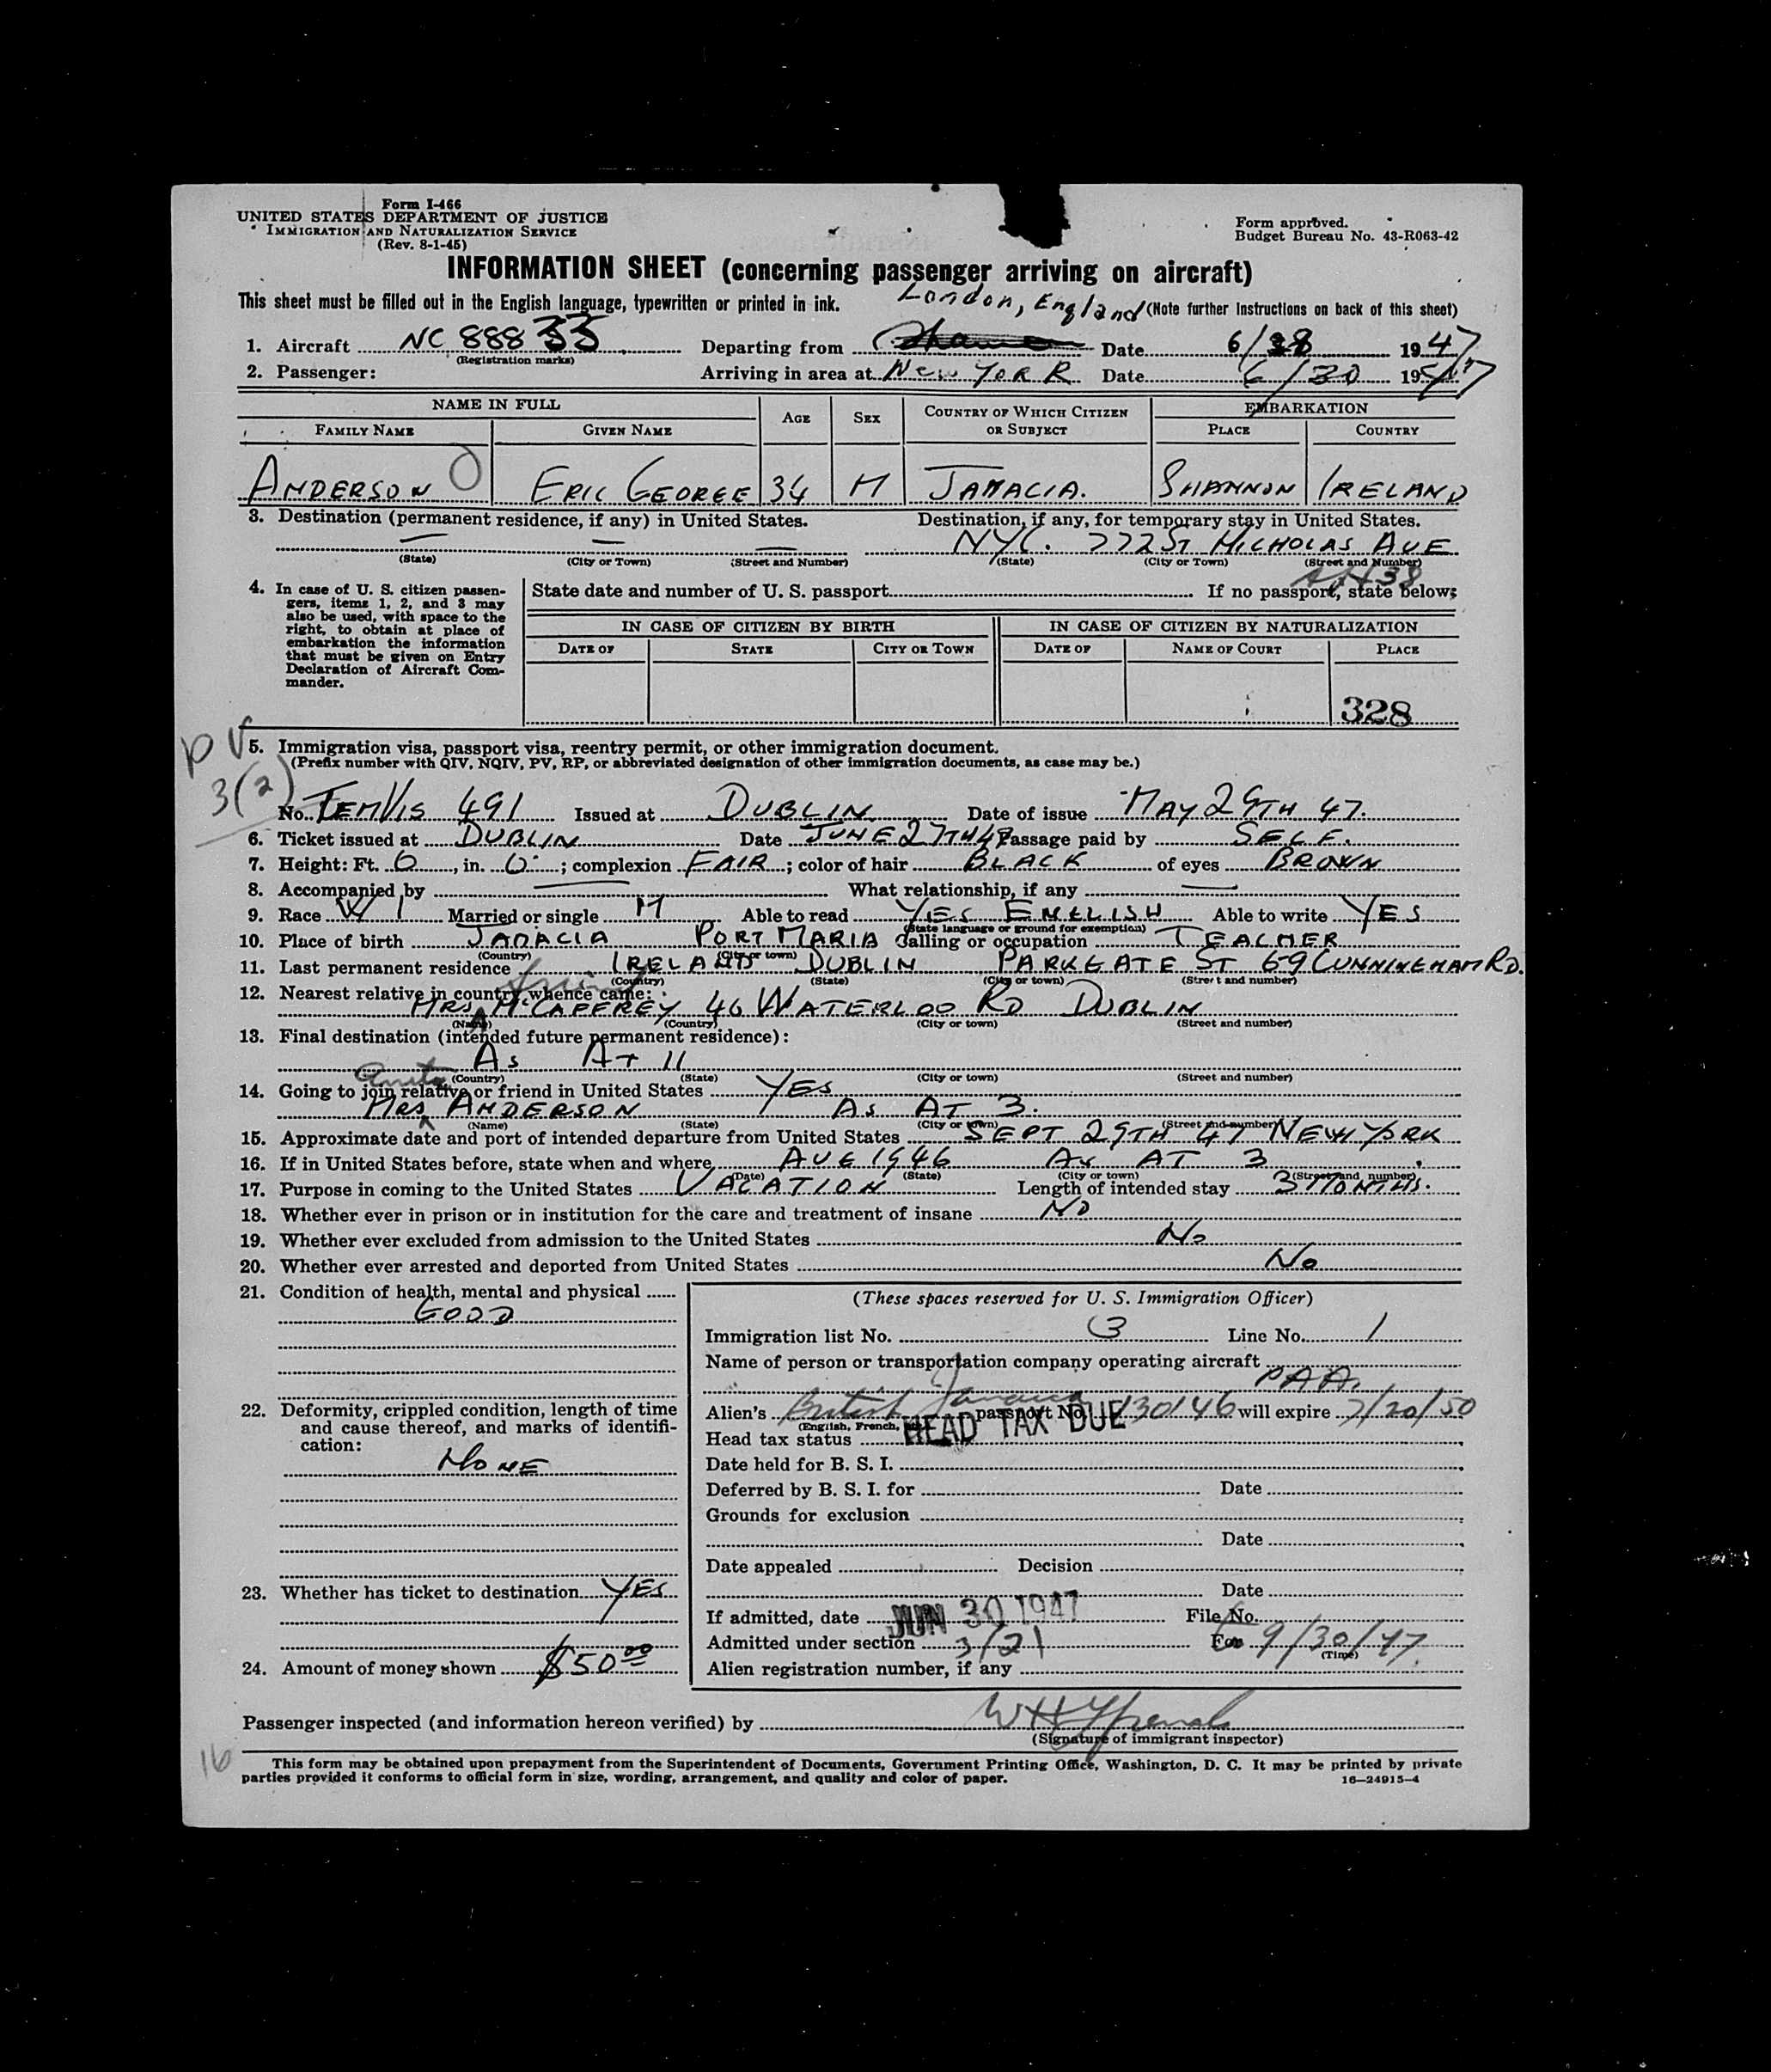 Form I-466
UNITED STATES DEPARTMENT OF JUSTICE
IMMIGRATION AND NATURALIZATION SERVICE
(Rev. 8-1-45)
Form approved.
Budget Bureau No. 43-R063-42
INFORMATION SHEET (concerning passenger arriving on aircraft)
This sheet must be filled out in the English language, typewritten or printed in ink. London, England (Note further instructions on back of this sheet)
1. Aircraft NC 88833 Departing from Date 6/28 1947
(Registration marks)
2. Passenger: Arriving in area at New York Date 6/30 1947
NAME IN FULL AGE SEX COUNTRY OF WHICH CITIZEN OR SUBJECT EMBARKATION
FAMILY NAME GIVEN NAME PLACE COUNTRY
ANDERSON ERIC GEORGE 34 M JAMACIA. SHANNON IRELAND
3. Destination (permanent residence, if any) in United States. Destination, if any, for temporary stay in United States.
— — — NYC. 772 ST NICHOLAS AVE
(State) (City or Town) (Street and Number) (State) (City or Town) (Street and Number)
38
4. In case of U. S. citizen passengers, items 1, 2, and 3 may also be used, with space to the right, to obtain at place of embarkation the information that must be given on Entry Declaration of Aircraft Commander.
State date and number of U. S. passport If no passport, state below:
IN CASE OF CITIZEN BY BIRTH IN CASE OF CITIZEN BY NATURALIZATION
DATE OF STATE CITY OR TOWN DATE OF NAME OF COURT PLACE
328
PV
3(2)
5. Immigration visa, passport visa, reentry permit, or other immigration document.
(Prefix number with QIV, NQIV, PV, RP, or abbreviated designation of other immigration documents, as case may be.)
No. TEMVIS 491 Issued at DUBLIN Date of issue MAY 29TH 47.
6. Ticket issued at DUBLIN Date JUNE 27TH 47 Passage paid by SELF.
7. Height: Ft. 6, in. 0; complexion FAIR; color of hair BLACK of eyes BROWN
8. Accompanied by — What relationship, if any —
9. Race W I Married or single M Able to read YES ENGLISH Able to write YES
(State language or ground for exemption)
10. Place of birth JAMACIA PORT MARIA Calling or occupation TEACHER
(Country) (City or town)
11. Last permanent residence IRELAND DUBLIN PARKGATE ST 69 CUNNINGHAM RD.
(Country) (State) (City or town) (Street and number)
12. Nearest relative in country whence came: friend
MRS A McCAFFREY 46 WATERLOO RD DUBLIN
(Name) (Country) (City or town) (Street and number)
13. Final destination (intended future permanent residence):
AS AT 11
(Country) (State) (City or town) (Street and number)
14. Going to join relative or friend in United States YES
MRS Anita ANDERSON AS AT 3.
(Name) (State) (City or town) (Street and number)
15. Approximate date and port of intended departure from United States SEPT 29TH 47 NEW YORK
16. If in United States before, state when and where AUG 1946 AS AT 3
(Date) (State) (City or town) (Street and number)
17. Purpose in coming to the United States VACATION Length of intended stay 3 MONTHS.
18. Whether ever in prison or in institution for the care and treatment of insane NO
19. Whether ever excluded from admission to the United States No
20. Whether ever arrested and deported from United States No
21. Condition of health, mental and physical
GOOD
22. Deformity, crippled condition, length of time and cause thereof, and marks of identification:
NONE
23. Whether has ticket to destination YES
24. Amount of money shown $50.00
(These spaces reserved for U. S. Immigration Officer)
Immigration list No. 3 Line No. 1
Name of person or transportation company operating aircraft
PAA.
Alien's British Jamaica passport No. 130146 will expire 7/20/50
(English, French,
Head tax status HEAD TAX DUE
Date held for B. S. I.
Deferred by B. S. I. for Date
Grounds for exclusion
Date
Date appealed Decision
Date
If admitted, date JUN 30 1947 File No.
Admitted under section 3/21 For 9/30/47
(Time)
Alien registration number, if any
Passenger inspected (and information hereon verified) by
(Signature of immigrant inspector)
16
This form may be obtained upon prepayment from the Superintendent of Documents, Government Printing Office, Washington, D. C. It may be printed by private
parties provided it conforms to official form in size, wording, arrangement, and quality and color of paper. 16—24915-4